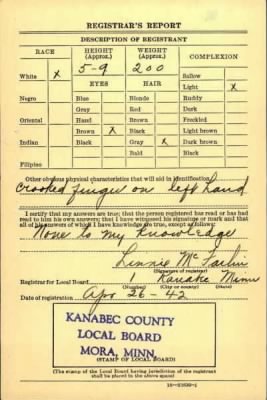 REGISTRAR'S REPORT
DESCRIPTION OF REGISTRANT
RACE HEIGHT (Approx.) WEIGHT (Approx.) COMPLEXION
5-9 200
White X Sallow
EYES HAIR Light X
Negro Blue Blonde Ruddy
Gray Red Dark
Oriental Hazel Brown Freckled
Brown X Black Light brown
Indian Black Gray X Dark brown
Bald Black
Filipino
Other obvious physical characteristics that will aid in identification
Crooked finger on left hand
I certify that my answers are true; that the person registered has read or has had
read to him his own answers; that I have witnessed his signature or mark and that
all of his answers of which I have knowledge are true, except as follows:
None to my knowledge
Linnie
(Signature of registrar)
Registrar for Local Board 1 Kanabec Minn
(Number) (City or county) (State)
Date of registration Apr 26-42
KANABEC COUNTY
LOCAL BOARD
MORA, MINN.
(STAMP OF LOCAL BOARD)
(The stamp of the Local Board having jurisdiction of the registrant
shall be placed in the above space)